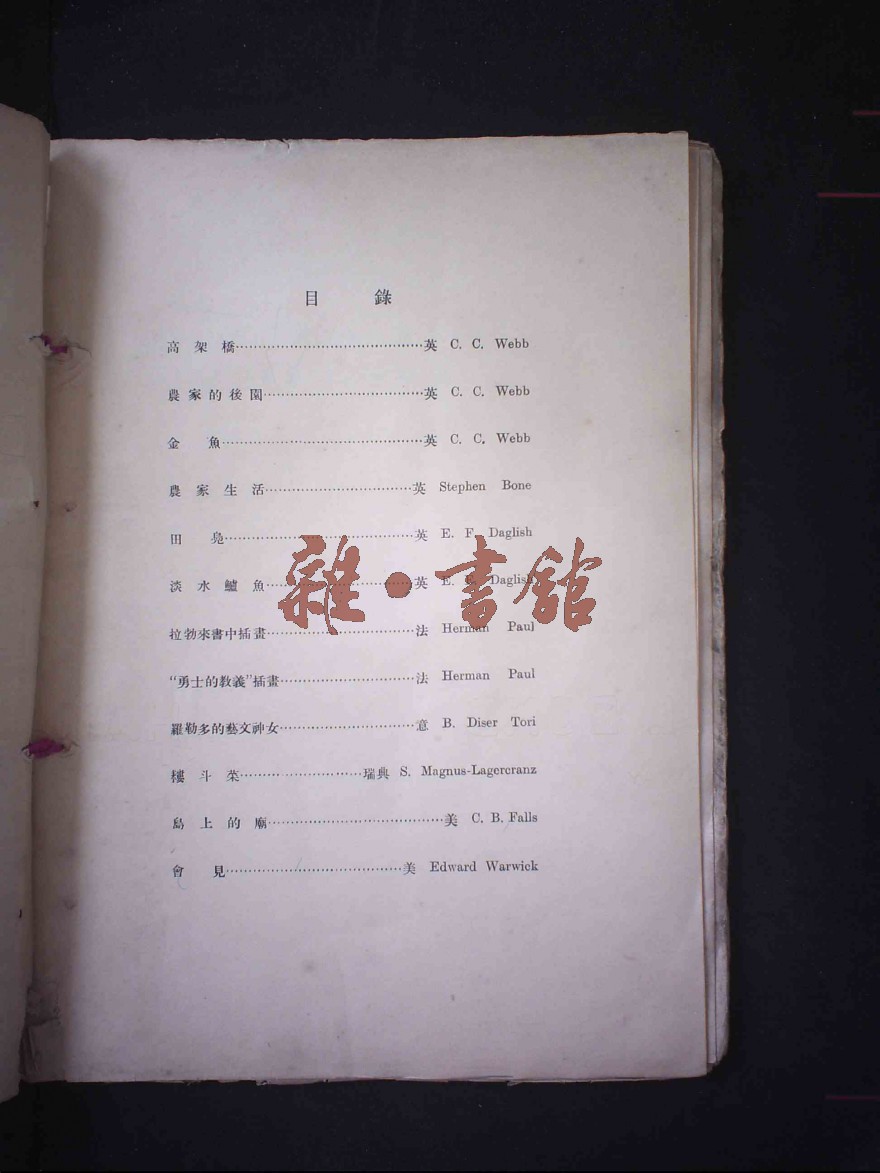 目錄
高架橋……………………………………英 C. C. Webb
農家的後園………………………………英 C. C. Webb
金魚………………………………………英 C. C. Webb
農家生活……………………………英 Stephen Bone
田鳧……………………………………英 E. F. Daglish
淡水鱸魚……………………………英 E. F. Daglish
拉勃來書中插畫……………………………法 Herman Paul
“勇士的教義”插畫…………………………法 Herman Paul
羅勒多的藝文神女…………………………意 B. Diser Tori
樓斗菜………………………瑞典 S. Magnus-Lagercranz
島上的廟…………………………………美 C. B. Falls
會見…………………………………美 Edward Warwick
雜·書館